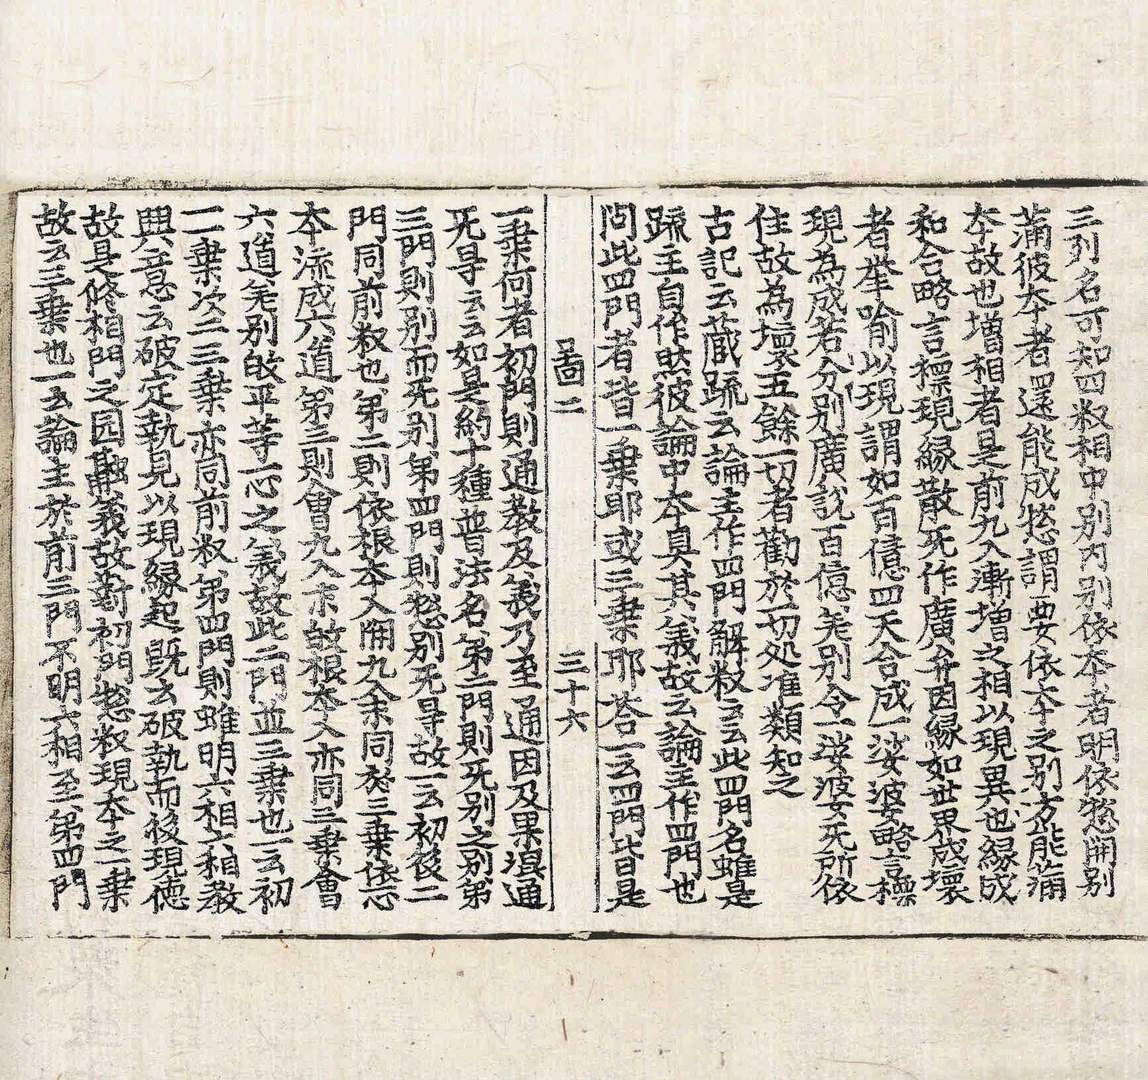 三列名可知四釈相中別內別依夲者明依惣開別
蒲彼夲者還能成惣謂要依夲之別方能蒲
夲故也增相者是前九入漸增之相以現異也縁成
和合略言標現縁散死作廣弁因縁如世界成壞
者举喻以現謂如百億四天合成一娑婆略言標
現為成若分別廣說百億羌別令一娑婆死所依
住故為壞五餘一切者勸於一切処准類知之
古記云藏䟽云論主作四門解釈云此四門名雖是
䟽主自作然彼論中夲具其義故云論主作四門也
问此四門者皆一乗耶或三乗耶荅一云四門皆是
啚二 三十六
一乗何者初門則通教及義乃至通因及果混通
死㝵云云如是約十種普法名第二門則死別之別第
三門則別而死別第四門則惣別死㝵故一云初後二
門同前釈也第二則依根夲入開九余同於三乗依心
夲流成六道第三則會九入末故根夲入亦同三乗會
六道羌別故平等一心之義故此二門並三乗也一云初
一一乗次二三乗亦同前釈第四門則雖明六相六相教
興意云破定執見以現縁起旣云破執而後現德
故是修相門之园融義故對初門惣釈現夲之一乗
故云三乗也一云論主於前三門不明六相至第四門